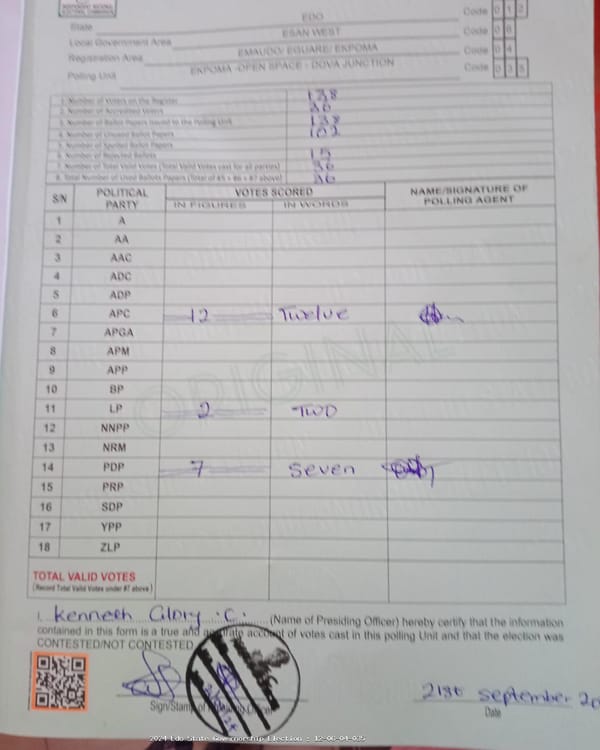 INDEPENDENT NATIONAL
ELECTORAL COMMISSION
State EDO Code 0 1 2
Local Government Area ESAN WEST Code 0 8
Registration Area EMAUDO/ EGUARE/ EKPOMA Code 0 4
Polling Unit EKPOMA -OPEN SPACE - DOVA JUNCTION Code 0 3 5
1. Number of Voters on the Register 138
2. Number of Accredited Voters 36
3. Number of Ballot Papers Issued to the Polling Unit 138
4. Number of Unused Ballot Papers 102
5. Number of Spoiled Ballot Papers
6. Number of Rejected Ballots 15
7. Number of Total Valid Votes (Total Valid Votes cast for all parties) 36
8. Total Number of Used Ballot Papers (Total of #5 + #6 + #7 above) 36
S/N POLITICAL PARTY VOTES SCORED NAME/SIGNATURE OF POLLING AGENT
IN FIGURES IN WORDS
1 A
2 AA
3 AAC
4 ADC
5 ADP
6 APC 12 Twelve
7 APGA
8 APM
9 APP
10 BP
11 LP 2 TWO
12 NNPP
13 NRM
14 PDP 7 Seven
15 PRP
16 SDP
17 YPP
18 ZLP
ORIGINAL
TOTAL VALID VOTES
(Record Total Valid Votes under #7 above)
I, Kenneth Glory .C. (Name of Presiding Officer) hereby certify that the information
contained in this form is a true and accurate account of votes cast in this polling Unit and that the election was
CONTESTED/NOT CONTESTED
Sign/Stamp of Presiding Officer
21st September 20
Date
2024 Edo State Governorship Election : 12-08-04-035